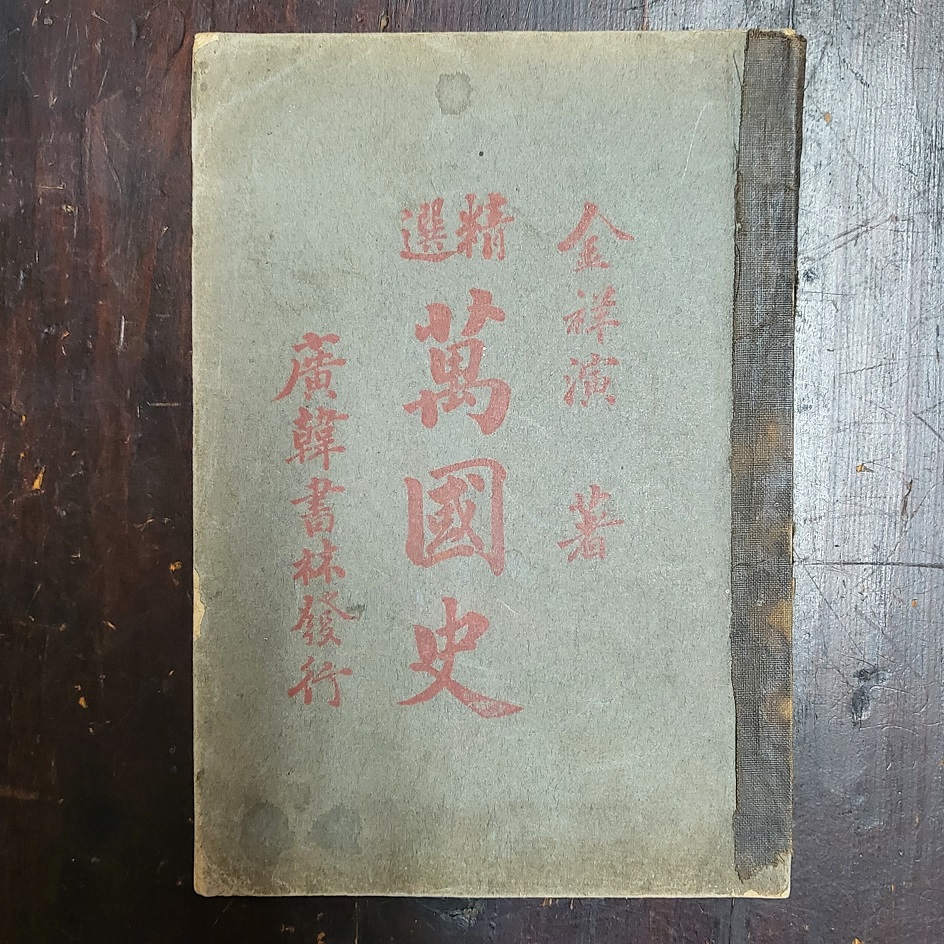 金祥演 著
精選 萬國史
廣韓書林發行